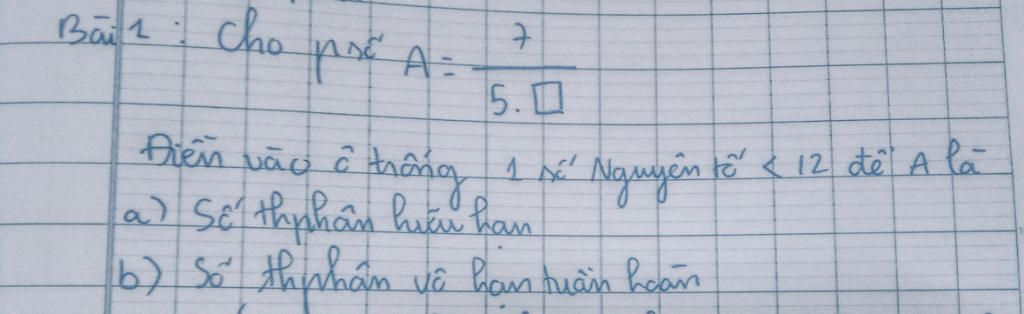 Bài 1 : Cho psố A = 7 / 5.□
Điền vào ô trống 1 số Nguyên tố < 12 để A là
a) Số thphân hữu hạn
b) Số thphân vô hạn tuần hoàn